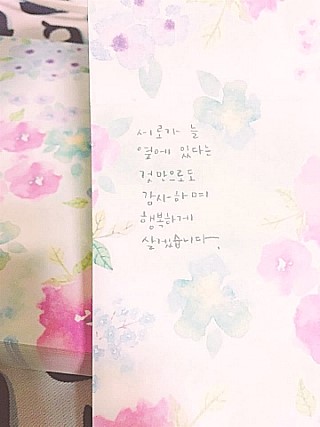 서로가 늘
옆에 있다는
것만으로도
감사하며
행복하게
살겠습니다.